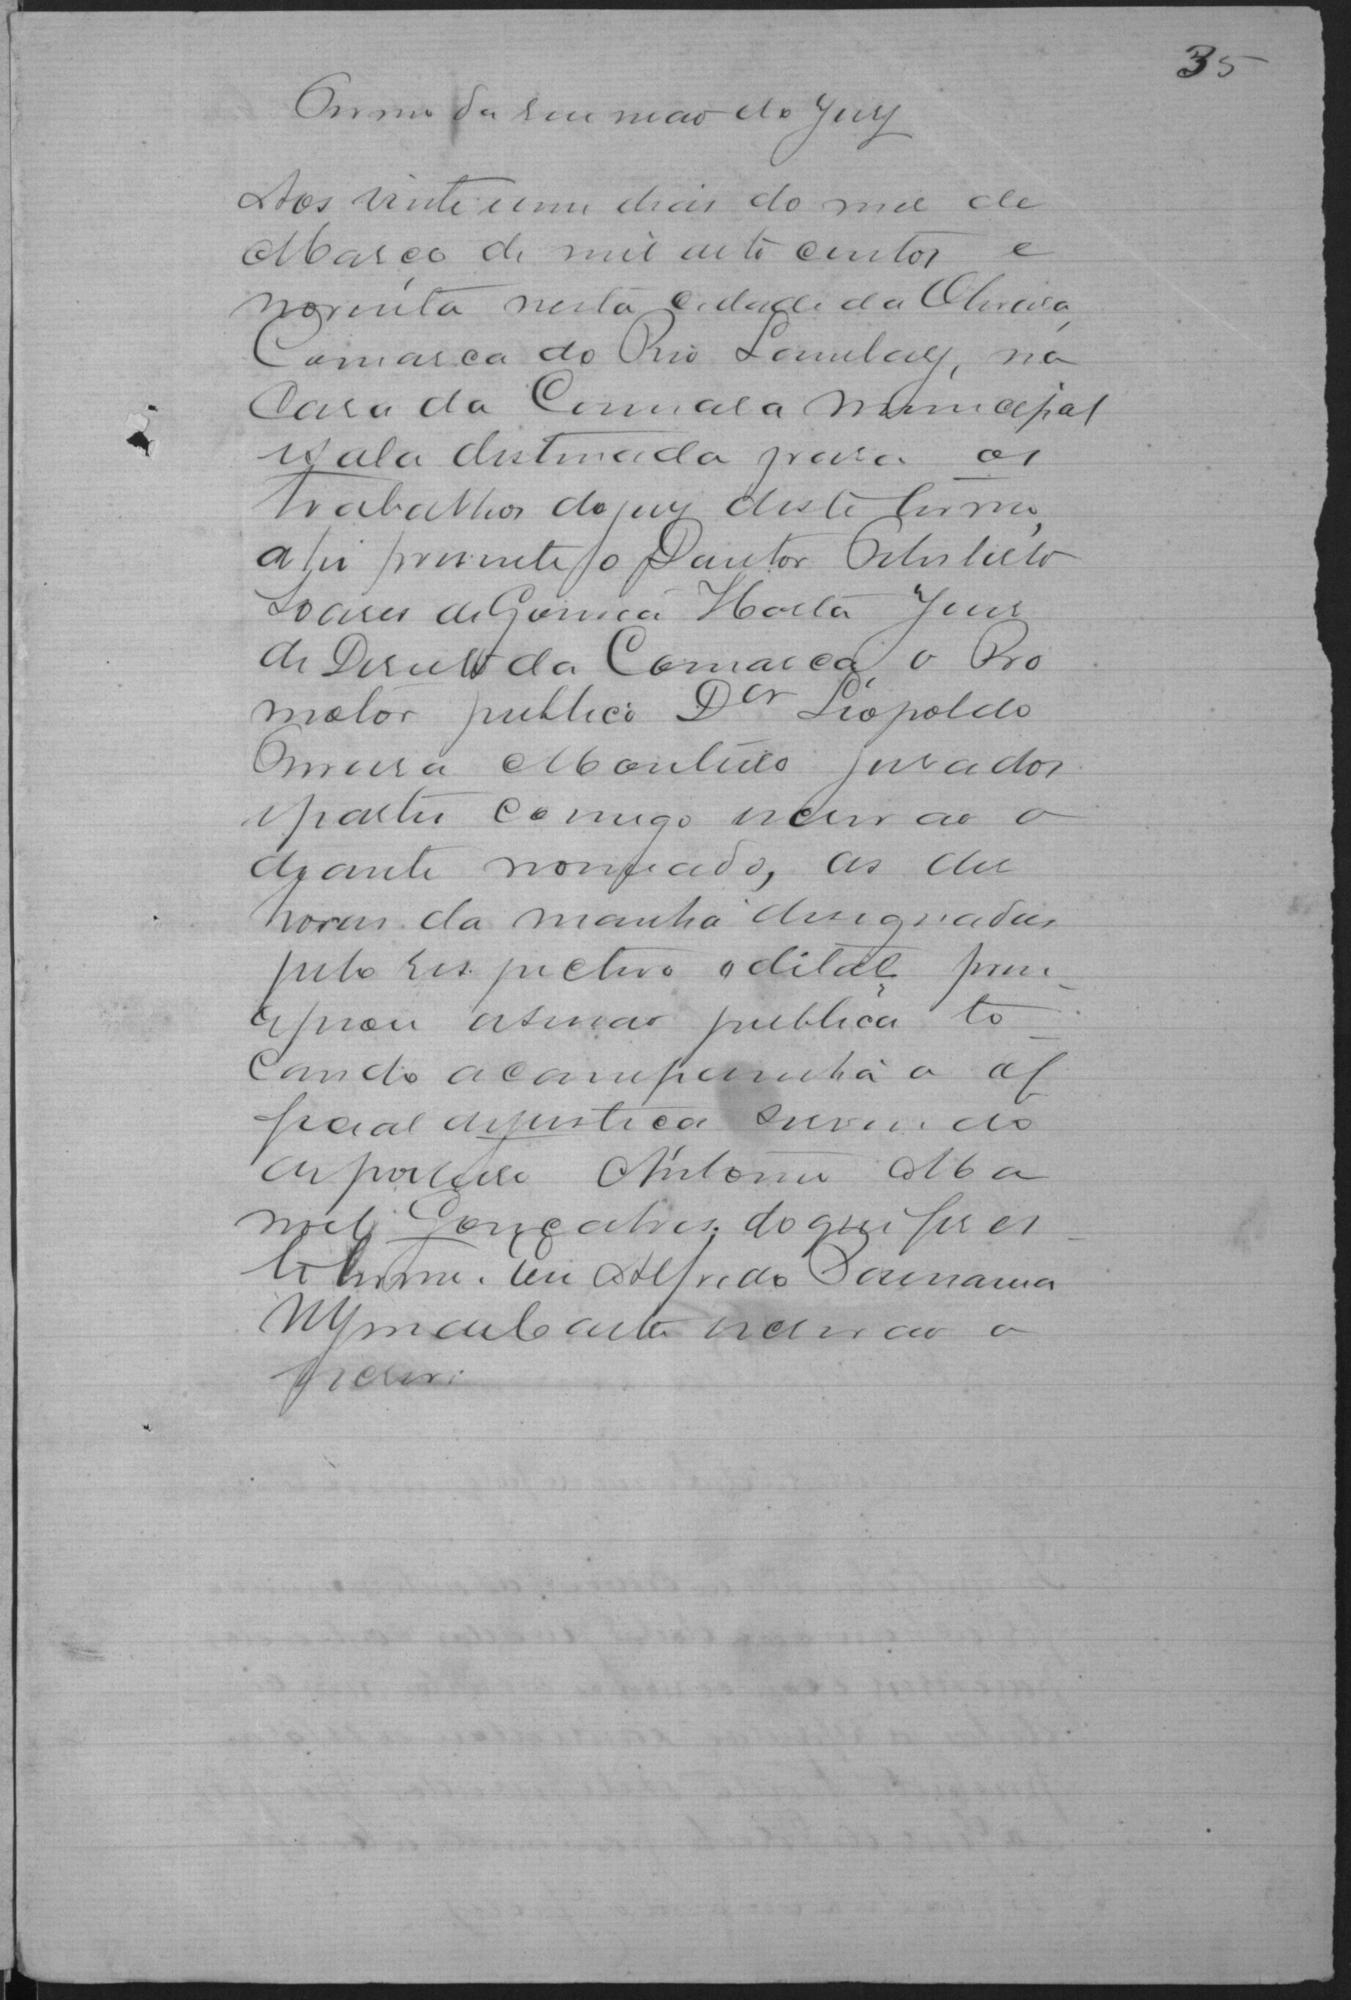 35
Termo da reunião do Jury
Aos vinte um dias do mez de
Março de mil oito centos e
noventa nesta cidade da Oliveira,
Comarca do Rio Lambary, na
Casa da Camara Municipal
e sala destinada para os
trabalhos do jury deste termo,
ahi presente o Doutor
Soares de Gouvea Horta Juiz
de Direito da Comarca, o Pro
motor publico Dor Leopoldo
Monteiro jurados
e partes comigo escrivão a
diante nomeado, as dez
horas da manhã designadas
pelo respectivo edital, prin
cipiou a sessão publica to
cando a campainha o of
ficial de justiça servindo
de porteiro Antonio Ma
noel Gonçalves. do que fiz es
te termo. Eu Alfredo
escrivão o
escrevi.